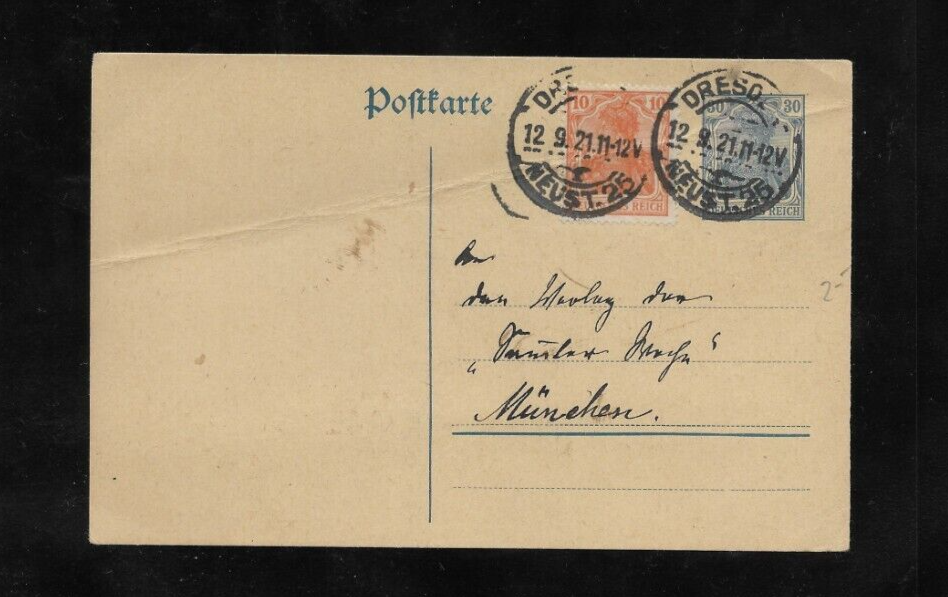 Postkarte
10 10
30 30
DRESD
12 9.21.11-12V
NEUST. 25
REICH
DRESD
12 9.21.11-12V
NEUST. 25
REICH
An
den Verlag der
„Samler Woche“
München.
2-